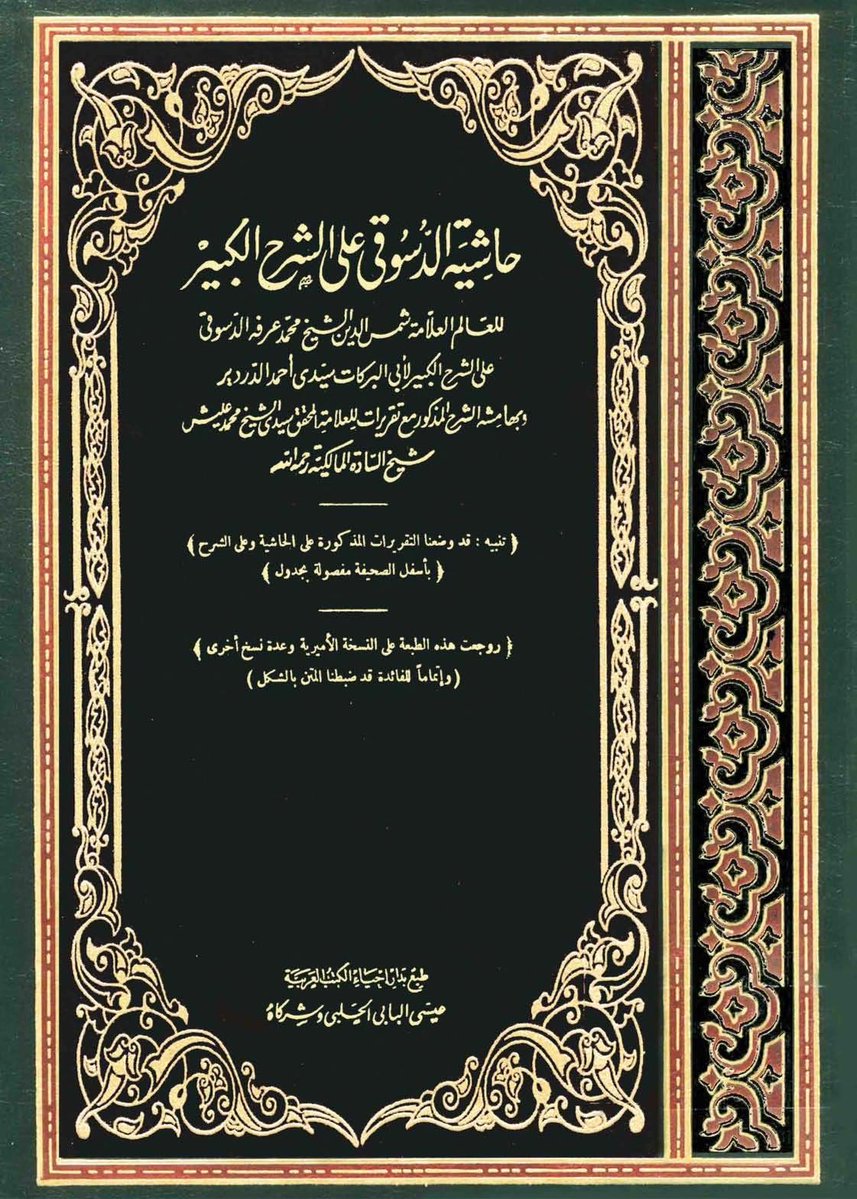 حاشية الدسوقي على الشرح الكبير
للعالم العلامة شمس الدين الشيخ محمد عرفه الدسوقى
على الشرح الكبير لأبي البركات سيدى أحمد الدردير
وبهامشه الشرح المذكور مع تقريرات للعلامة المحقق سيدى الشيخ محمد عليش
شيخ السادة المالكية رحمه الله
﴿ تنبيه : قد وضعنا التقريرات المذكورة على الحاشية وعلى الشرح ﴾
﴿ بأسفل الصحيفة مفصولة بجدول ﴾
﴿ روجعت هذه الطبعة على النسخة الأميرية وعدة نسخ أخرى ﴾
( وإتماماً للفائدة قد ضبطنا المتن بالشكل )
طبع بدار إحياء الكتب العربية
عيسى البابى الحلبى وشركاه